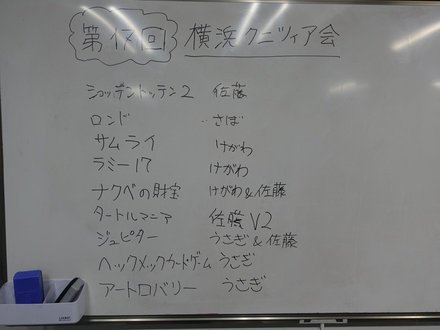 第17回 横浜クニツィア会
ショッテントッテン2 佐藤
ロンド さば
サムライ けがわ
ラミー17 けがわ
ナクベの財宝 けがわ&佐藤
タートルマニア 佐藤V2
ジュピター うさぎ&佐藤
ヘックメックカードゲーム うさぎ
アートロバリー うさぎ